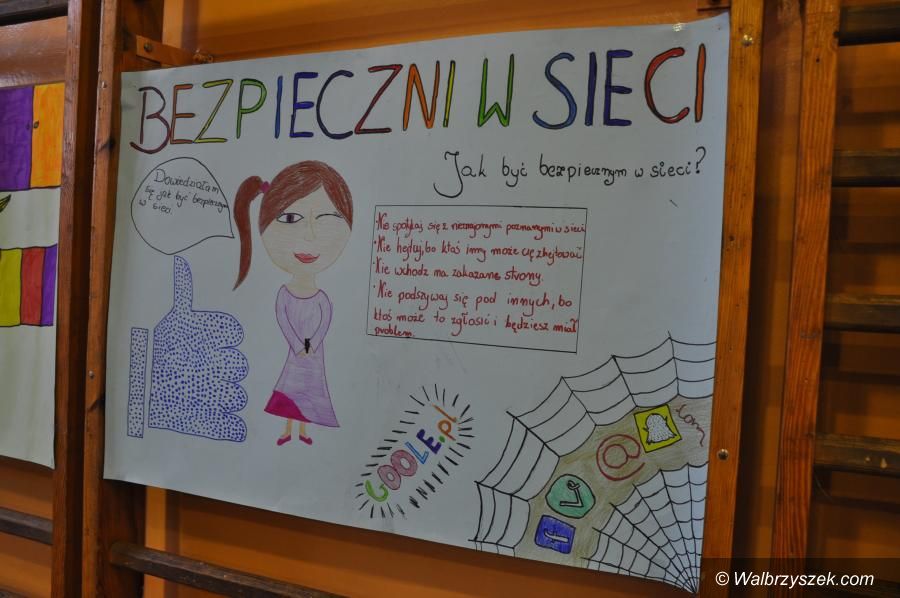 BEZPIECZNI W SIECI
Jak być bezpiecznym w sieci?
Dowiedziałam
się jak być bezpiecznym
w sieci.
•Nie spotykaj się z nieznajomymi poznanymi w sieci
•Nie hejtuj, bo ktoś inny może cię zhejtować
•Nie wchodź na zakazane strony.
•Nie podszywaj się pod innych, bo
ktoś może to zgłosić i będziesz miał
problem.
GOOLE.pl
@
com
f
© Walbrzyszek.com